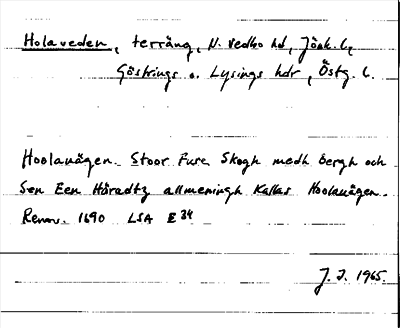 Holaveden, terräng, N. Vedbo hd, Jönk. l,
Göstrings o. Lysings hdr, Östg. l.
Hoolavägen. Stoor Fure Skogh medh bergh och
Sen Een Häradtz allmeningh Kallas Hoolavägen.
Renov. 1690 LSA E 34
J. J. 1965.